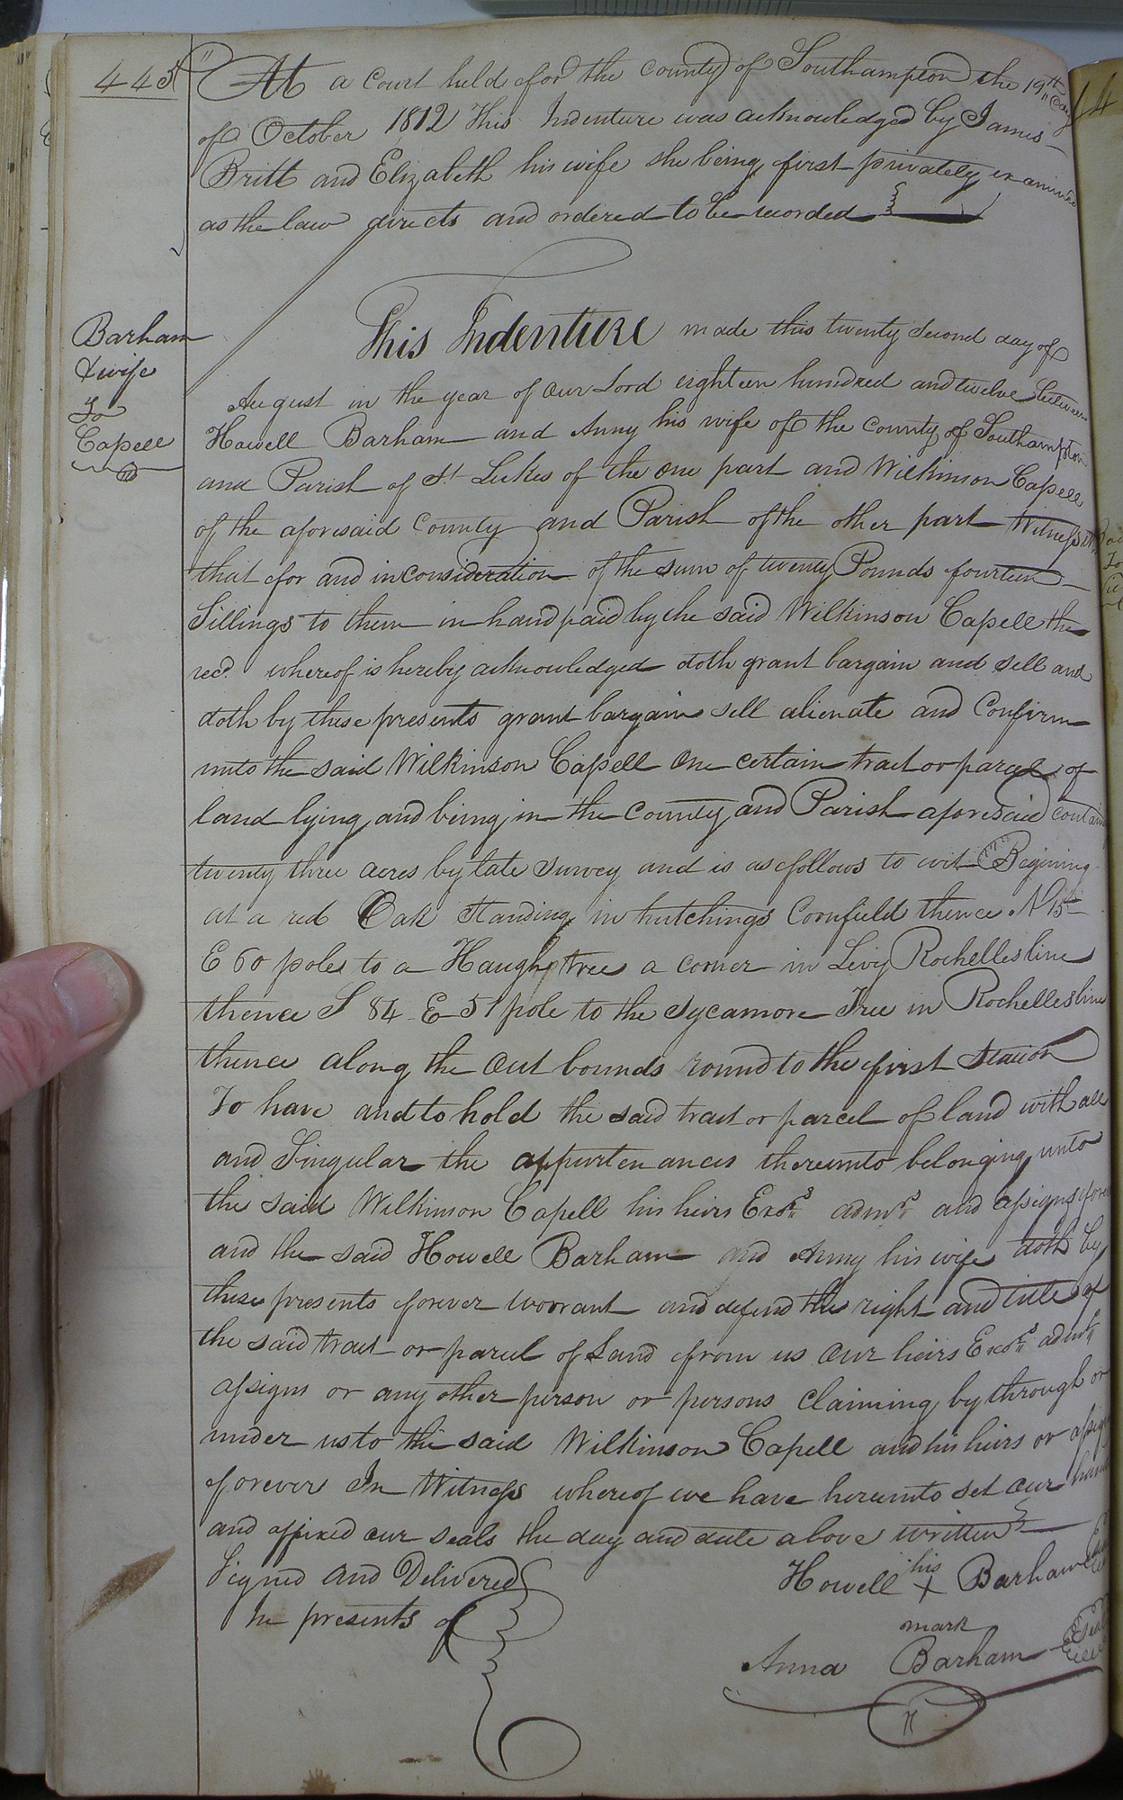 445
At a Court held for the county of Southampton the 19th day
of October 1812 This Indenture was acknowledged by James
Britt and Elizabeth his wife she being first privately examined
as the law directs and ordered to be recorded
Barham
& wife
To
Capell
This Indenture made this twenty second day of
August in the year of our Lord eighteen hundred and twelve between
Howell Barham and Anny his wife of the County of Southampton
and Parish of St Lukes of the one part and Wilkinson Capell
of the aforesaid County and Parish of the other part Witnesseth
that for and in consideration of the sum of twenty Pounds fourteen
Sillings to them in hand paid by the said Wilkinson Capell the
recd. whereof is hereby acknowledged doth grant bargain and sell and
doth by these presents grant bargain sell alienate and Confirm
unto the said Wilkinson Capell One certain tract or parcel of
land lying and being in the County and Parish aforesaid contain
twenty three acres by late survey and is as follows to wit Begining
at a red Oak Standing in hutchings Cornfield thence N 15
E 60 poles to a Haugh tree a corner in Levy Rochelles line
thence S 84 E 51 pole to the Sycamore Tree in Rochelles line
thence along the Out bounds round to the first Staion
To have and to hold the said tract or parcel of land with all
and Singular the appurtenances thereunto belonging unto
the said Wilkinson Capell his heirs Exors admrs and assigns forever
and the said Howell Barham and Anny his wife doth by
these presents forever worrant and defend the right and title of
the said tract or parcel of Land from us our heirs Exors admrs
assigns or any other person or persons Claiming by through or
under us to the said Wilkinson Capell and his heirs or assigns
forever In Witness whereof we have hereunto set our hands
and affixed our seals the day and date above written
Signed and Delivered
In presents of
Howell his X Barham
mark
Anna Barham Seal